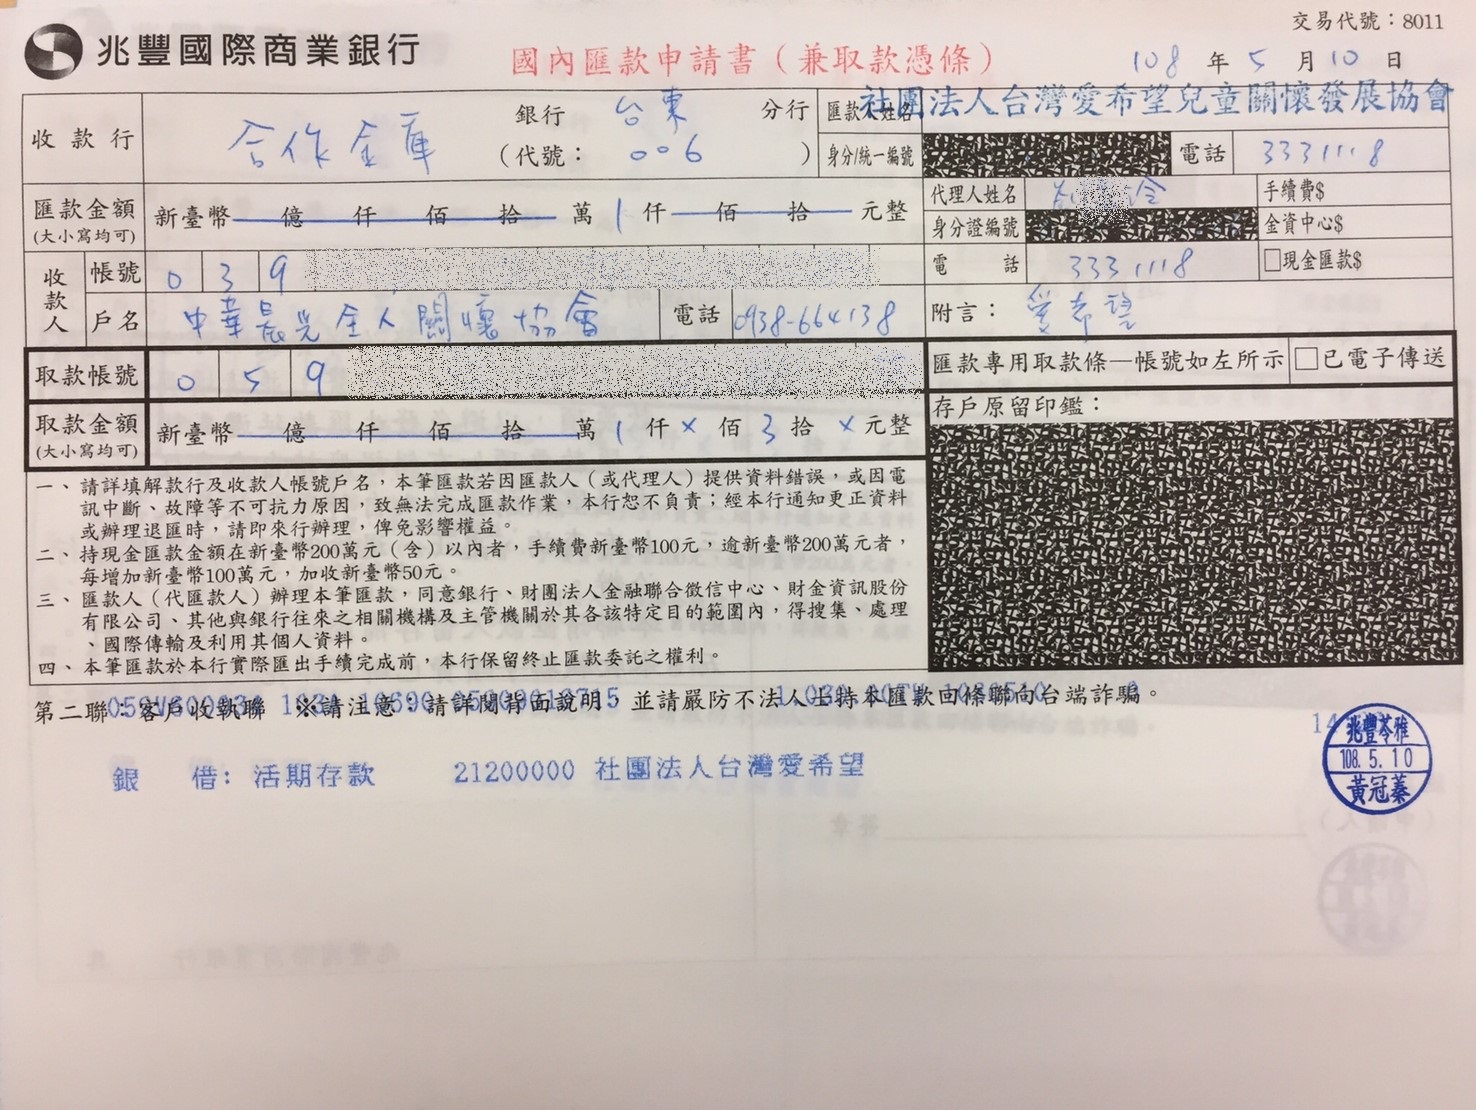 交易代號：8011
兆豐國際商業銀行
國內匯款申請書（兼取款憑條）
108 年 5 月 10 日
收款行 合作金庫 銀行 台東 分行
（代號： 006 ）
匯款人姓名 社團法人台灣愛希望兒童關懷發展協會
身分/統一編號 電話 3331118
匯款金額 (大小寫均可) 新臺幣 億 仟 佰 拾 萬 1 仟 佰 拾 元整
代理人姓名 手續費$
身分證編號 金資中心$
電話 3331118 □現金匯款$
收款人 帳號 0 3 9
戶名 中華晨光全人關懷協會 電話 0938-664138
附言： 愛希望
取款帳號 0 5 9
匯款專用取款條—帳號如左所示 □已電子傳送
取款金額 (大小寫均可) 新臺幣 億 仟 佰 拾 萬 1 仟 × 佰 3 拾 × 元整
存戶原留印鑑：
一、請詳填解款行及收款人帳號戶名，本筆匯款若因匯款人（或代理人）提供資料錯誤，或因電
訊中斷、故障等不可抗力原因，致無法完成匯款作業，本行恕不負責；經本行通知更正資料
或辦理退匯時，請即來行辦理，俾免影響權益。
二、持現金匯款金額在新臺幣200萬元（含）以內者，手續費新臺幣100元，逾新臺幣200萬元者，
每增加新臺幣100萬元，加收新臺幣50元。
三、匯款人（代匯款人）辦理本筆匯款，同意銀行、財團法人金融聯合徵信中心、財金資訊股份
有限公司、其他與銀行往來之相關機構及主管機關於其各該特定目的範圍內，得搜集、處理
、國際傳輸及利用其個人資料。
四、本筆匯款於本行實際匯出手續完成前，本行保留終止匯款委託之權利。
第二聯：客戶收執聯 ※請注意：請詳閱背面說明，並請嚴防不法人士持本匯款回條聯向台端詐騙。
兆豐苓雅
108. 5. 10
黃冠蓁
銀 借: 活期存款 21200000 社團法人台灣愛希望